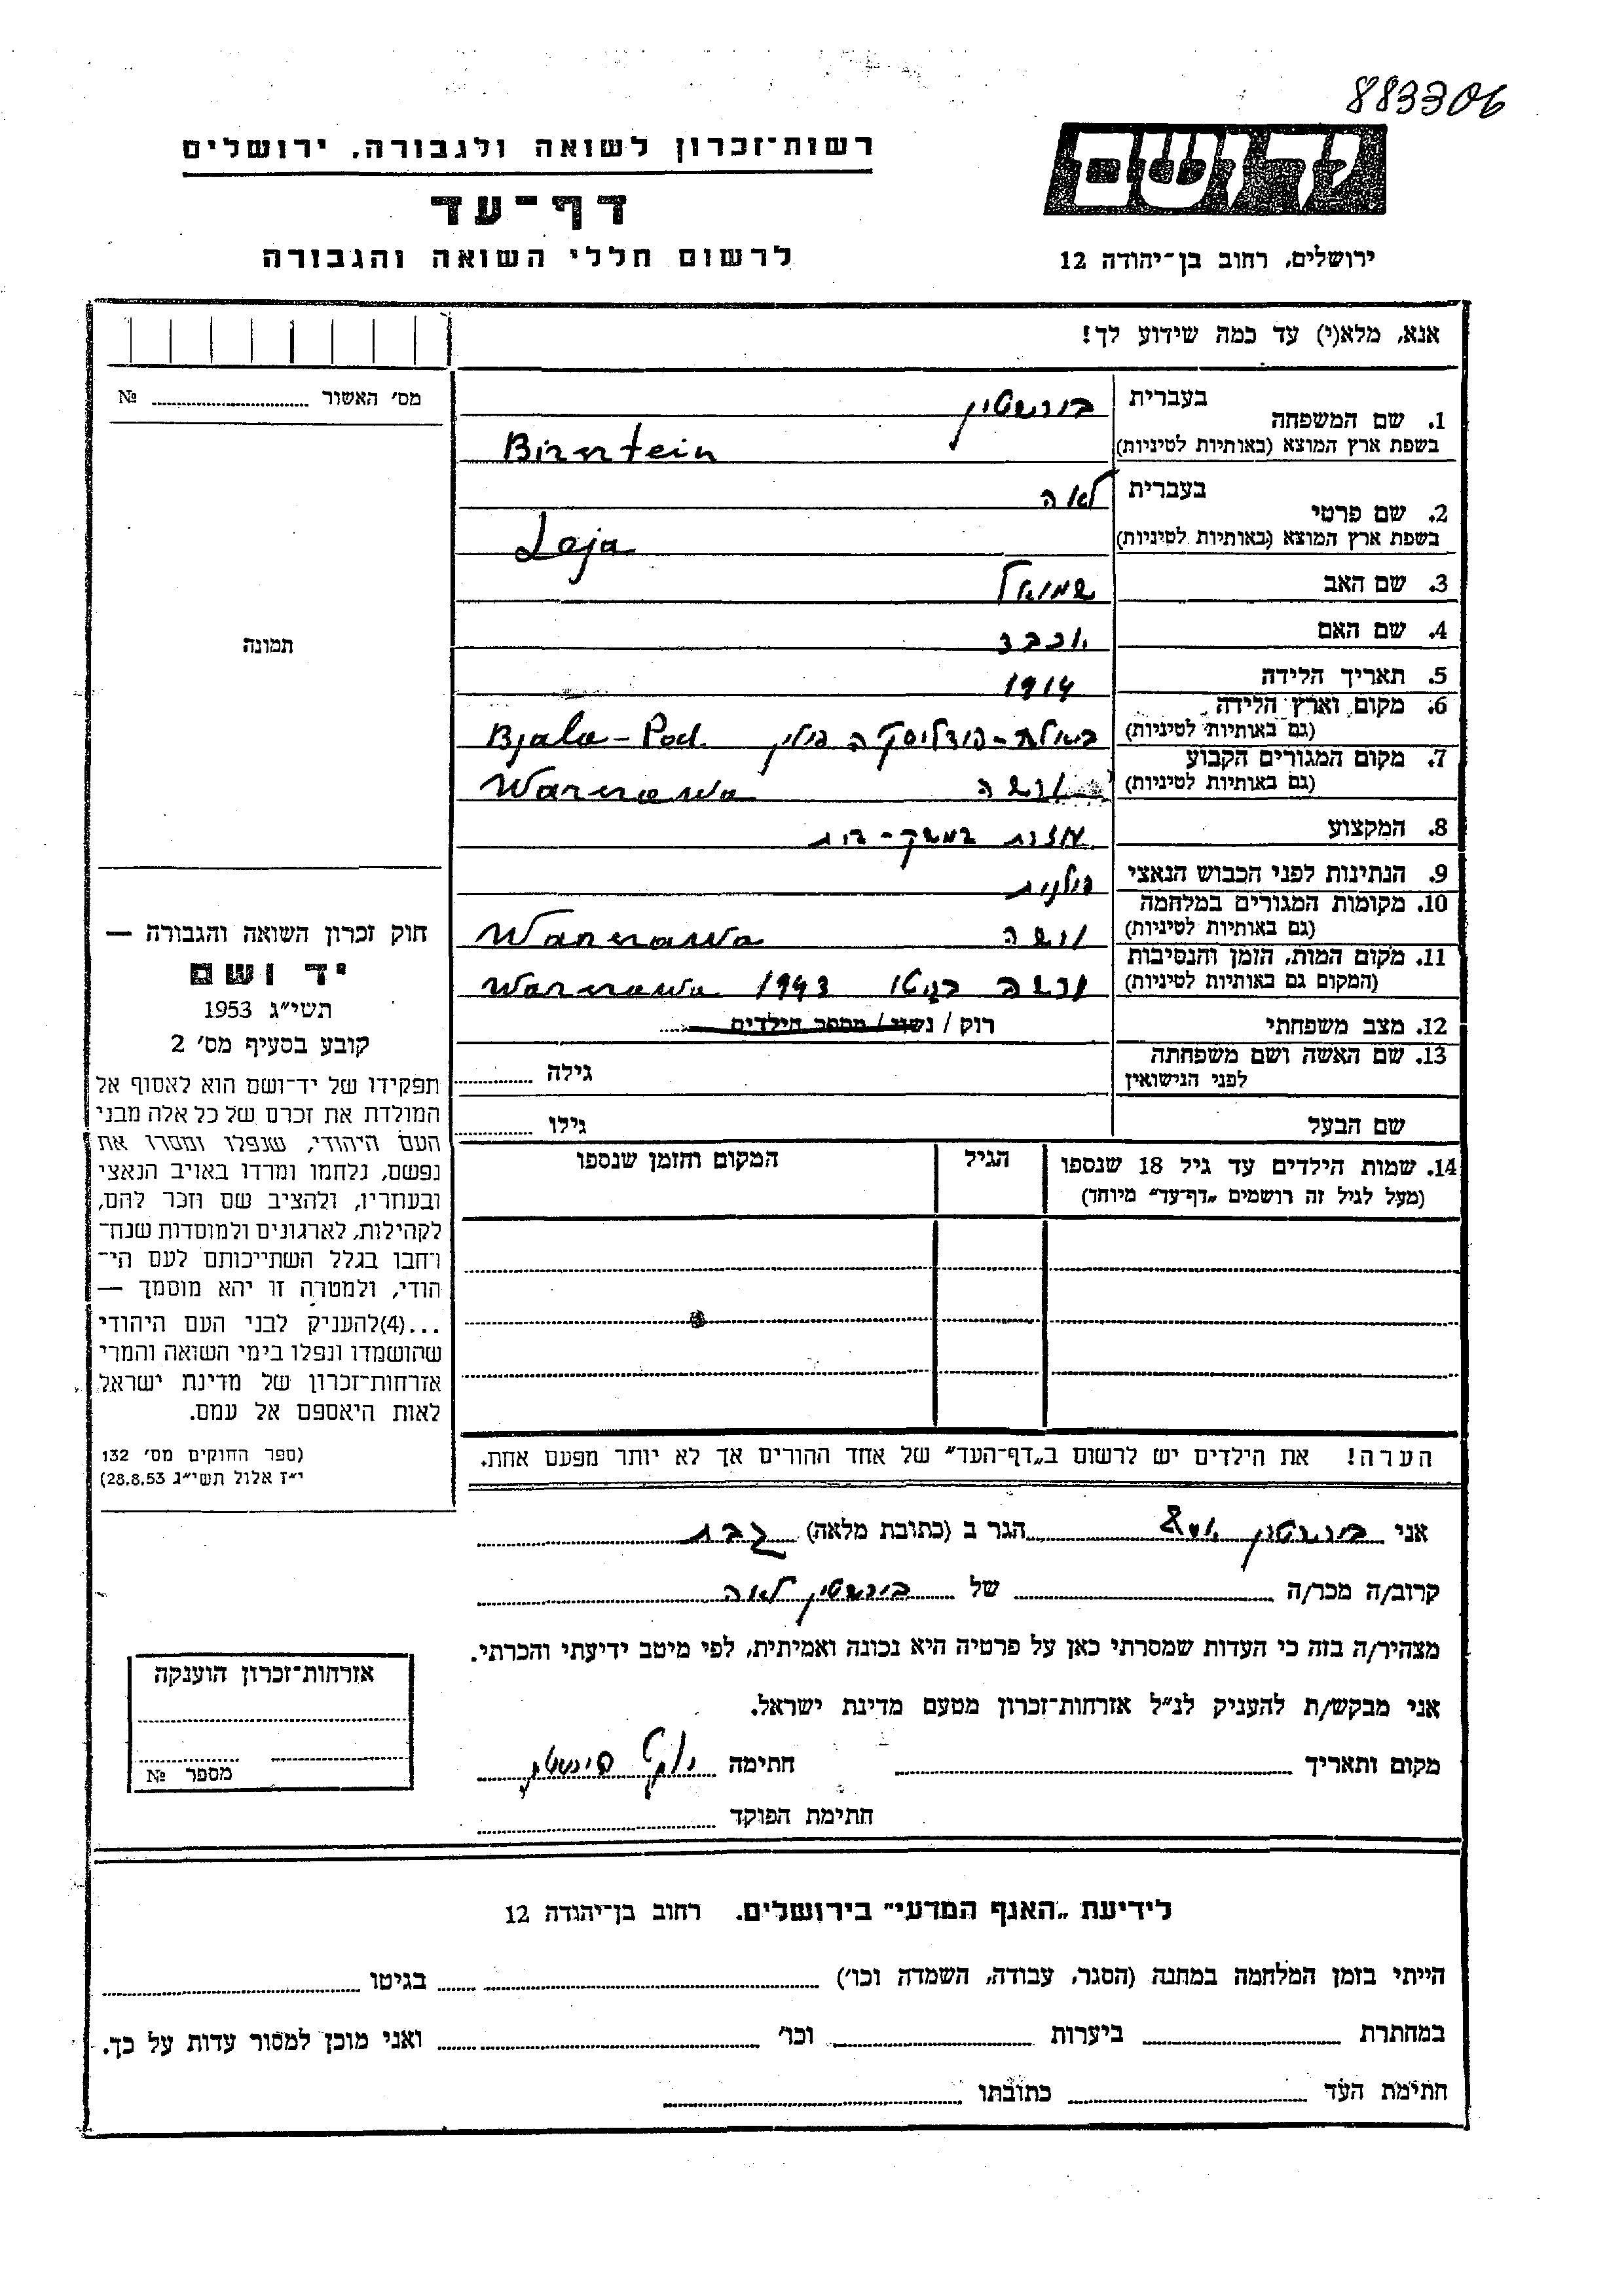 883306
רשות־זכרון לשואה ולגבורה, ירושלים
ידושם
דף־עד
לרשום חללי השואה והגבורה
ירושלים, רחוב בן־יהודה 12
אנא, מלא(י) עד כמה שידוע לך!
מס׳ האשור № 
1. שם המשפחה
בעברית
בורשטין
בשפת ארץ המוצא (באותיות לטיניות)
2. שם פרטי
בעברית
לאה
בשפת ארץ המוצא (באותיות לטיניות) Laja
3. שם האב שמואל
4. שם האם יוכבד
5. תאריך הלידה 1914
6. מקום וארץ הלידה
(גם באותיות לטיניות) ביאלה-פודליסקה פולין Bjala-Pod.
7. מקום המגורים הקבוע
(גם באותיות לטיניות) ורשה
8. המקצוע עוזרת במשק-בית
9. הנתינות לפני הכבוש הנאצי פולנית
10. מקומות המגורים במלחמה
(גם באותיות לטיניות) ורשה
11. מקום המות, הזמן והנסיבות
(המקום גם באותיות לטיניות) ורשה בגטו 1943
12. מצב משפחתי רוק / נשוי / מספר הילדים
13. שם האשה ושם משפחתה
לפני הנישואין
גילה
שם הבעל
גילו
14. שמות הילדים עד גיל 18 שנספו
(מעל לגיל זה רושמים „דף־עד״ מיוחד)
הגיל
המקום והזמן שנספו
הערה! את הילדים יש לרשום ב„דף־העד״ של אחד ההורים אך לא יותר מפעם אחת.
תמונה
חוק זכרון השואה והגבורה —
יד ושם
תשי״ג 1953
קובע בסעיף מס׳ 2
תפקידו של יד־ושם הוא לאסוף אל
המולדת את זכרם של כל אלה מבני
העם היהודי, שנפלו ומסרו את
נפשם, נלחמו ומרדו באויב הנאצי
ובעוזריו, ולהציב שם וזכר להם,
לקהילות, לארגונים ולמוסדות שנח־
רחבו בגלל השתייכותם לעם הי־
הודי, ולמטרה זו יהא מוסמך —
...(4)להעניק לבני העם היהודי
שהושמדו ונפלו בימי השואה והמרי
אזרחות־זכרון של מדינת ישראל
לאות היאספם אל עמם.
(ספר החוקים מס׳ 132
י״ז אלול תשי״ג 28.8.53)
אני בורשטין הגר ב (כתובת מלאה) גבת
קרוב/ה מכר/ה של בורשטין לאה
מצהיר/ה בזה כי העדות שמסרתי כאן על פרטיה היא נכונה ואמיתית, לפי מיטב ידיעתי והכרתי.
אני מבקש/ת להעניק לנ״ל אזרחות־זכרון מטעם מדינת ישראל.
מקום ותאריך חתימה
חתימת הפוקד
אזרחות־זכרון הוענקה
מספר №
לידיעת „האגף המדעי״ בירושלים. רחוב בן־יהודה 12
הייתי בזמן המלחמה במחנה (הסגר, עבודה, השמדה וכו׳) בגיטו
במחתרת ביערות וכו׳ ואני מוכן למסור עדות על כך.
חתימת העד כתובתו